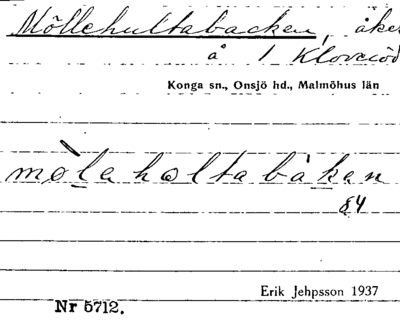 Möllehultabacken, åker
å 1 Kloveröd
Konga sn., Onsjö hd., Malmöhus län
mòlahꜵltabàkan
84
Erik Jehpsson 1937
Nr 5712.